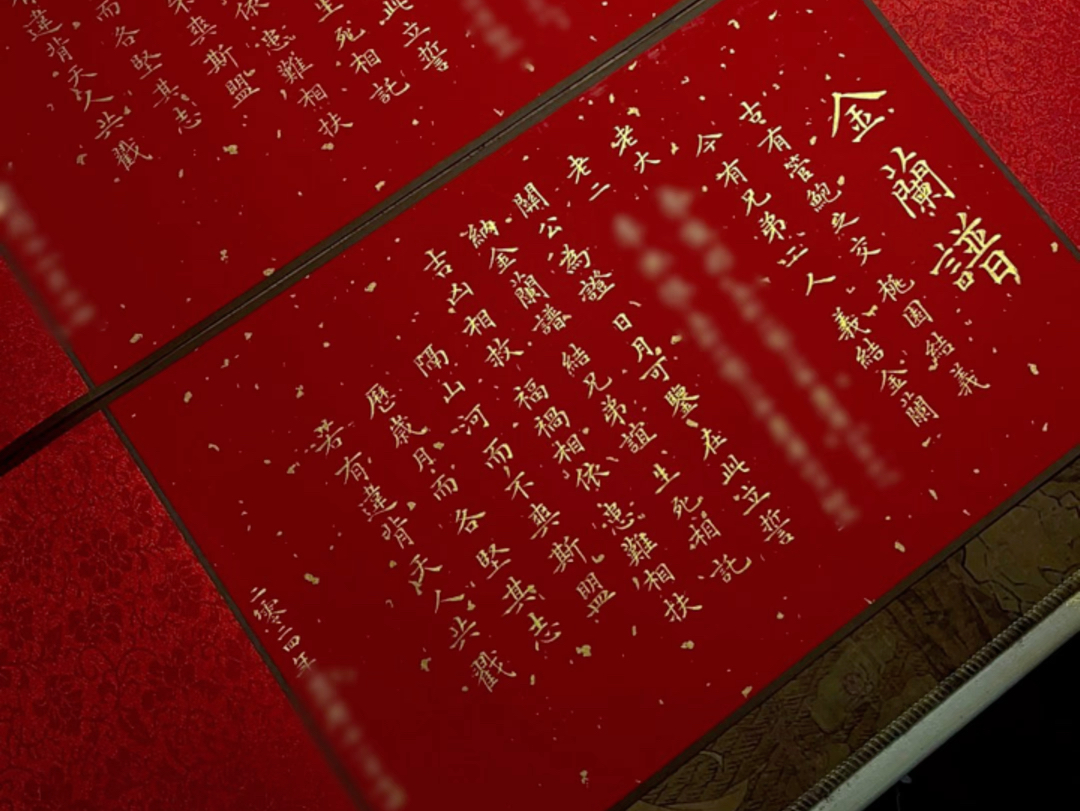 金蘭譜
古有管鮑之交 桃園結義
今有兄弟二人 義結金蘭
老大
老二
關公為證 日月可鑒 在此立誓
納金蘭譜 結兄弟誼 生死相託
吉凶相救 福禍相依 患難相扶
隔山河而不爽斯盟
歷歲月而各堅其志
若有違背天人共戮
二零二四年
此立誓
生死相託
依 患難相扶
爽斯盟
而各堅其志
違背天人共戮